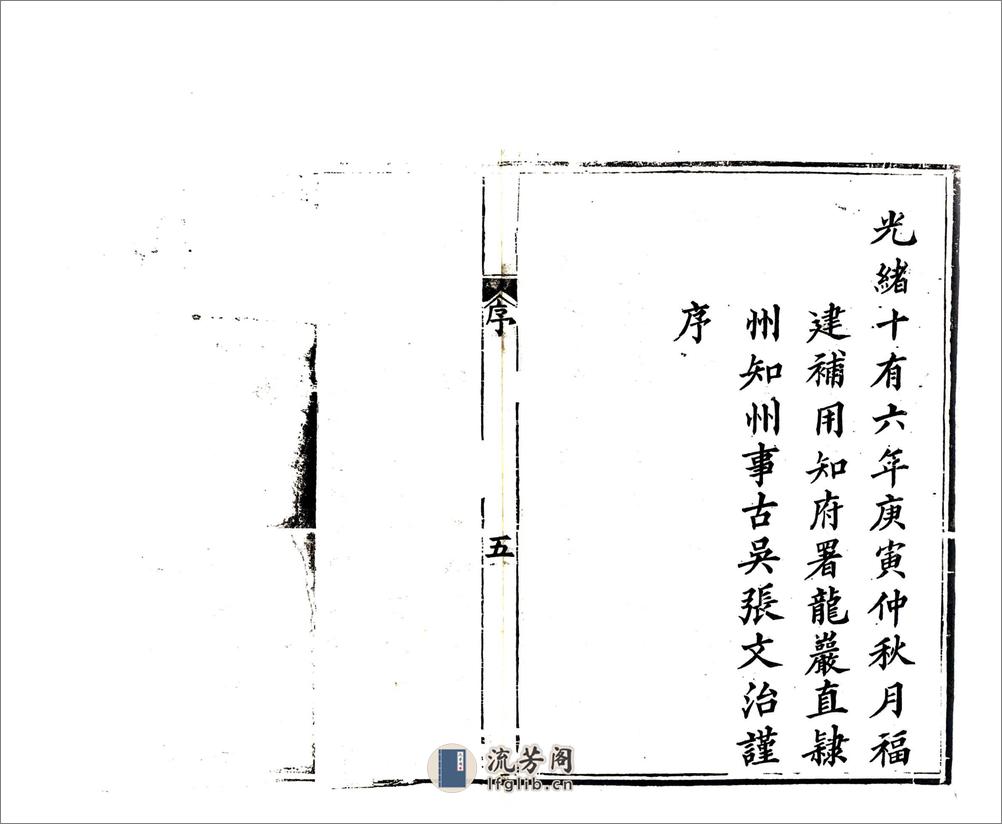 光緒十有六年庚寅仲秋月福
建補用知府署龍巖直隸
州知州事古吳張文治謹
序
序
五
流芳阁
lfglib.cn